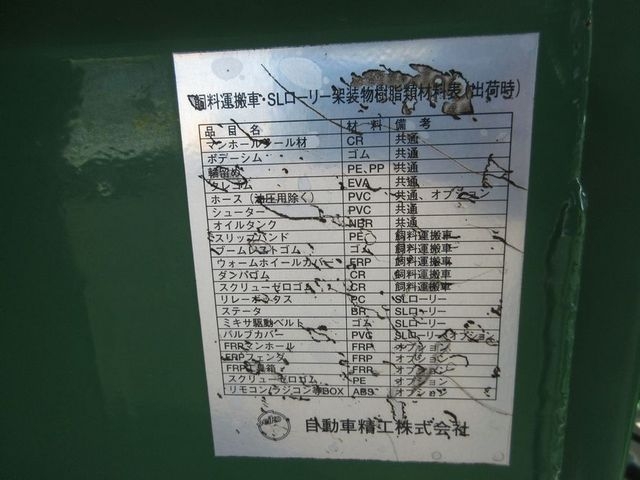 飼料運搬車・SLローリー架装物樹脂類材料表(出荷時)
品目名 材料 備考
マンホールシール材 CR 共通
ボデーシム ゴム 共通
輪留め PE、PP 共通
クレゴム EVA 共通
ホース(油圧用除く) PVC 共通、オプション
シューター PVC 共通
オイルタンク NBR 共通
スリップバンド PE 飼料運搬車
ブームレストゴム ゴム 飼料運搬車
ウォームホイールカバー FRP 飼料運搬車
ダンパゴム CR 飼料運搬車
スクリューゼロゴム CR 飼料運搬車
リレーボックス PC SLローリー
ステータ BR SLローリー
ミキサ駆動ベルト ゴム SLローリー
バルブカバー PVC SLローリーオプション
FRPマンホール FRP オプション
FRPフェンダ FRP オプション
FRP工具箱 FRP オプション
スクリューゼロゴム PE オプション
リモコン(ラジコン)等BOX ABS オプション
自動車精工株式会社